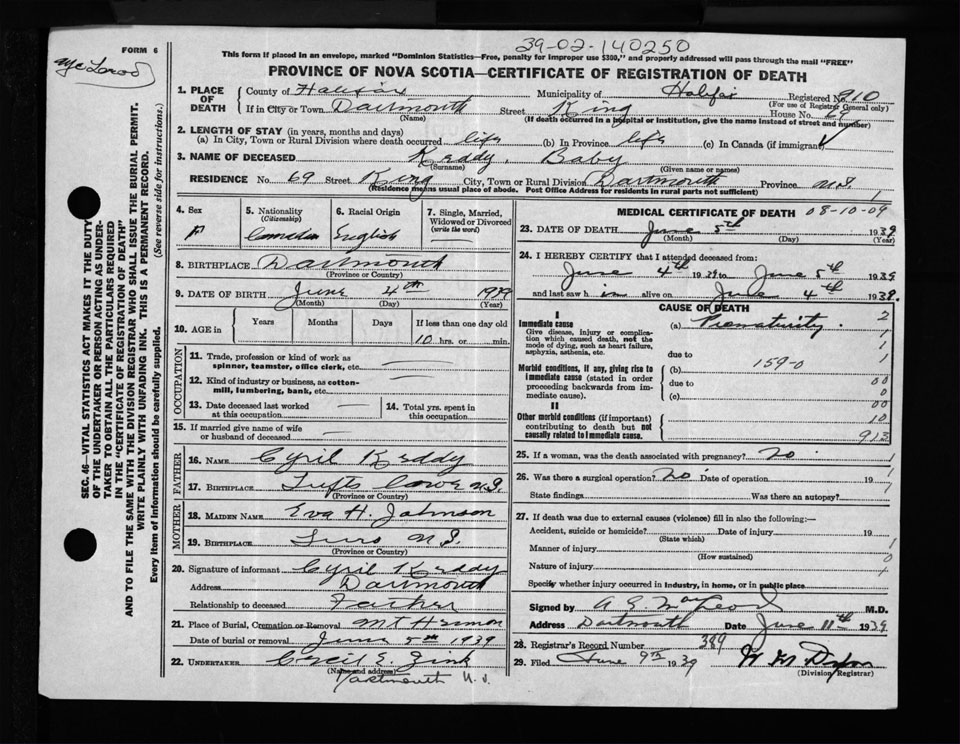 39-02-140250
FORM 6
This form if placed in an envelope, marked "Dominion Statistics—Free, penalty for improper use $300," and properly addressed will pass through the mail "FREE"
PROVINCE OF NOVA SCOTIA—CERTIFICATE OF REGISTRATION OF DEATH
1. PLACE OF DEATH County of Halifax Municipality of Halifax Registered No. 910
(For use of Registrar General only)
If in City or Town Dartmouth Street King House No. 69
(Name) (If death occurred in a hospital or institution, give the name instead of street and number)
2. LENGTH OF STAY (in years, months and days)
(a) In City, Town or Rural Division where death occurred life (b) In Province life (c) In Canada (if immigrant)
3. NAME OF DECEASED Keddy, Baby
(Surname) (Given name or names)
RESIDENCE No. 69 Street King City, Town or Rural Division Dartmouth Province N.S.
(Residence means usual place of abode. Post Office Address for residents in rural parts not sufficient)
4. Sex
5. Nationality (Citizenship) Canadian
6. Racial Origin English
7. Single, Married, Widowed or Divorced (write the word) —
8. BIRTHPLACE Dartmouth
(Province or Country)
9. DATE OF BIRTH June 4th 1939
(Month) (Day) (Year)
10. AGE in Years Months Days If less than one day old
10 hrs. or min.
OCCUPATION
11. Trade, profession or kind of work as spinner, teamster, office clerk, etc. —
12. Kind of industry or business, as cotton-mill, lumbering, bank, etc. —
13. Date deceased last worked at this occupation —
14. Total yrs. spent in this occupation
15. If married give name of wife or husband of deceased —
FATHER
16. NAME Cyril Keddy
17. BIRTHPLACE Tufts Cove N.S.
(Province or Country)
MOTHER
18. MAIDEN NAME Eva H. Johnson
19. BIRTHPLACE Truro N.S.
(Province or Country)
20. Signature of informant Cyril Keddy
Address Dartmouth
Relationship to deceased Father
21. Place of Burial, Cremation or Removal Mt Hermon
Date of burial or removal June 5th 1939
22. UNDERTAKER Cecil E. Zink
(Name and address)
Dartmouth N.S.
MEDICAL CERTIFICATE OF DEATH 08-10-09
23. DATE OF DEATH June 5th 1939
(Month) (Day) (Year)
24. I HEREBY CERTIFY that I attended deceased from:
June 4th 1939 to June 5th 1939
and last saw h im alive on June 4th 1939.
CAUSE OF DEATH
I
Immediate cause (a) Prematurity. 2
Give disease, injury or complication which caused death, not the mode of dying, such as heart failure, asphyxia, asthenia, etc.
due to
Morbid conditions, if any, giving rise to immediate cause (stated in order proceeding backwards from immediate cause).
(b) 159-0
due to 00
(c) 0
II 00
Other morbid conditions (if important) contributing to death but not causally related to immediate cause.
10
912
25. If a woman, was the death associated with pregnancy? no. 1
26. Was there a surgical operation? no. Date of operation 1
State findings Was there an autopsy?
27. If death was due to external causes (violence) fill in also the following:—
Accident, suicide or homicide? Date of injury 19
(State which)
Manner of injury
(How sustained)
Nature of injury
Specify whether injury occurred in industry, in home, or in public place
Signed by A. G. MacLeod M.D.
Address Dartmouth Date June 11th 1939
28. Registrar's Record Number 389
29. Filed June 9th 1939
(Division Registrar)
SEC. 46—VITAL STATISTICS ACT MAKES IT THE DUTY
OF THE UNDERTAKER OR PERSON ACTING AS UNDER-
TAKER TO OBTAIN ALL THE PARTICULARS REQUIRED
IN THE "CERTIFICATE OF REGISTRATION OF DEATH"
AND TO FILE THE SAME WITH THE DIVISION REGISTRAR WHO SHALL ISSUE THE BURIAL PERMIT.
WRITE PLAINLY WITH UNFADING INK. THIS IS A PERMANENT RECORD.
Every item of information should be carefully supplied. (See reverse side for instructions.)